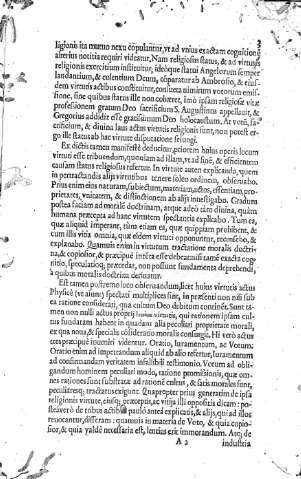 3
ligionis ita mutuo nexu copulantur, vt ad vnius exactam cognitionē
alterius notitia requiri videatur. Nam religiosus status, & ad virtutis
religionis exercitium instituitur; ideòque statui Angelorum semper
laudantium, & colentium Deum, cõparatur ab Ambrosio, & eius-
dem virtutis actibus constituitur, consueta nimirum votorum emis-
sione, sine quibus status ille non cohæret, imò ipsam religiosæ vitæ
professionem gratum Deo sacrificium S. Augustinus appellauit, &
Gregorius addidit esse gratissimum Deo holocaustum. At verò, sa-
crificium, & diuina laus actus virtutis religionis sunt, non potest er-
go ille status ab hac virtute disputatione seiungi.
Ex dictis tamen manifestè deducitur, priorem huius operis locum
virtuti esse tribuendum, quoniam ad illam, vt ad finē, & efficientem
causam status religiosus refertur. In virtute autem explicanda, quem
in pertractandis alijs virtutibus tenere soleo ordinem, obseruabo.
Prius enim eius naturam, subiectum, materiam, actus, essentiam, pro-
prietates, vnitatem, & distinctionem ab alijs inuestigabo. Gradum
postea faciam ad moralē doctrinam, atque adeò tàm diuina, quàm
humana præcepta ad hanc virtutem spectantia explicabo. Tum ea,
quæ aliquid imperant, tùm etiam ea, quæ quippiam prohibent, &
cum illis vitia omnia, quæ eidem virtuti opponuntur, recensebo, &
explanabo. Quamuis enim in virtutum tractatione moralis doctri-
na, & copiosior, & præcipuè intēta esse debeat nisi tamē exacta cog-
nitio, speculatioq; præcedat, non possunt fundamenta deprehendi,
à quibus moralis doctrina deriuatur.
Est tamen postremo loco obseruandum, licet huius virtutis actus
Physicè (vt aiunt) spectati multiplices sint, in præsenti non nisi sub
ea ratione considerari, qua cultum Deo debitum continēt. Sunt ta-
men non nulli actus proprij huius virtutis, qui rationem ipsam cul-
tus fundatam habent in quadam alia peculiari proprietate morali,
ex qua noua, & specialis consideratio moralis consurgit. Hi verò actus
tres præcipuè inueniri videntur. Oratio, Iuramentum, ac Votum;
Oratio enim ad impetrandum aliquid ab alio refertur, Iuramentum
ad confirmandam veritatem infallibili testimonio. Votum ad obli-
gandum hominem peculiari modo, ratione promissionis, quæ om-
nes rationes sunt substratæ ad rationē cultus, & satis morales sunt,
peculiaremq; tractatus exigunt. Quapropter prius generatim de ipsa
religionis virtute, eiusq; præceptis, ac vitijs illi oppositis dicam: po-
steà verò de tribus actibus paulò anteà explicatis, & alijs, qui ad illos
reuocantur, differam: quamuis in materia de Voto, & quia copio-
sior, & quia valdè necessaria est, lentius erit immorandum. Atq; de
A 2 industria